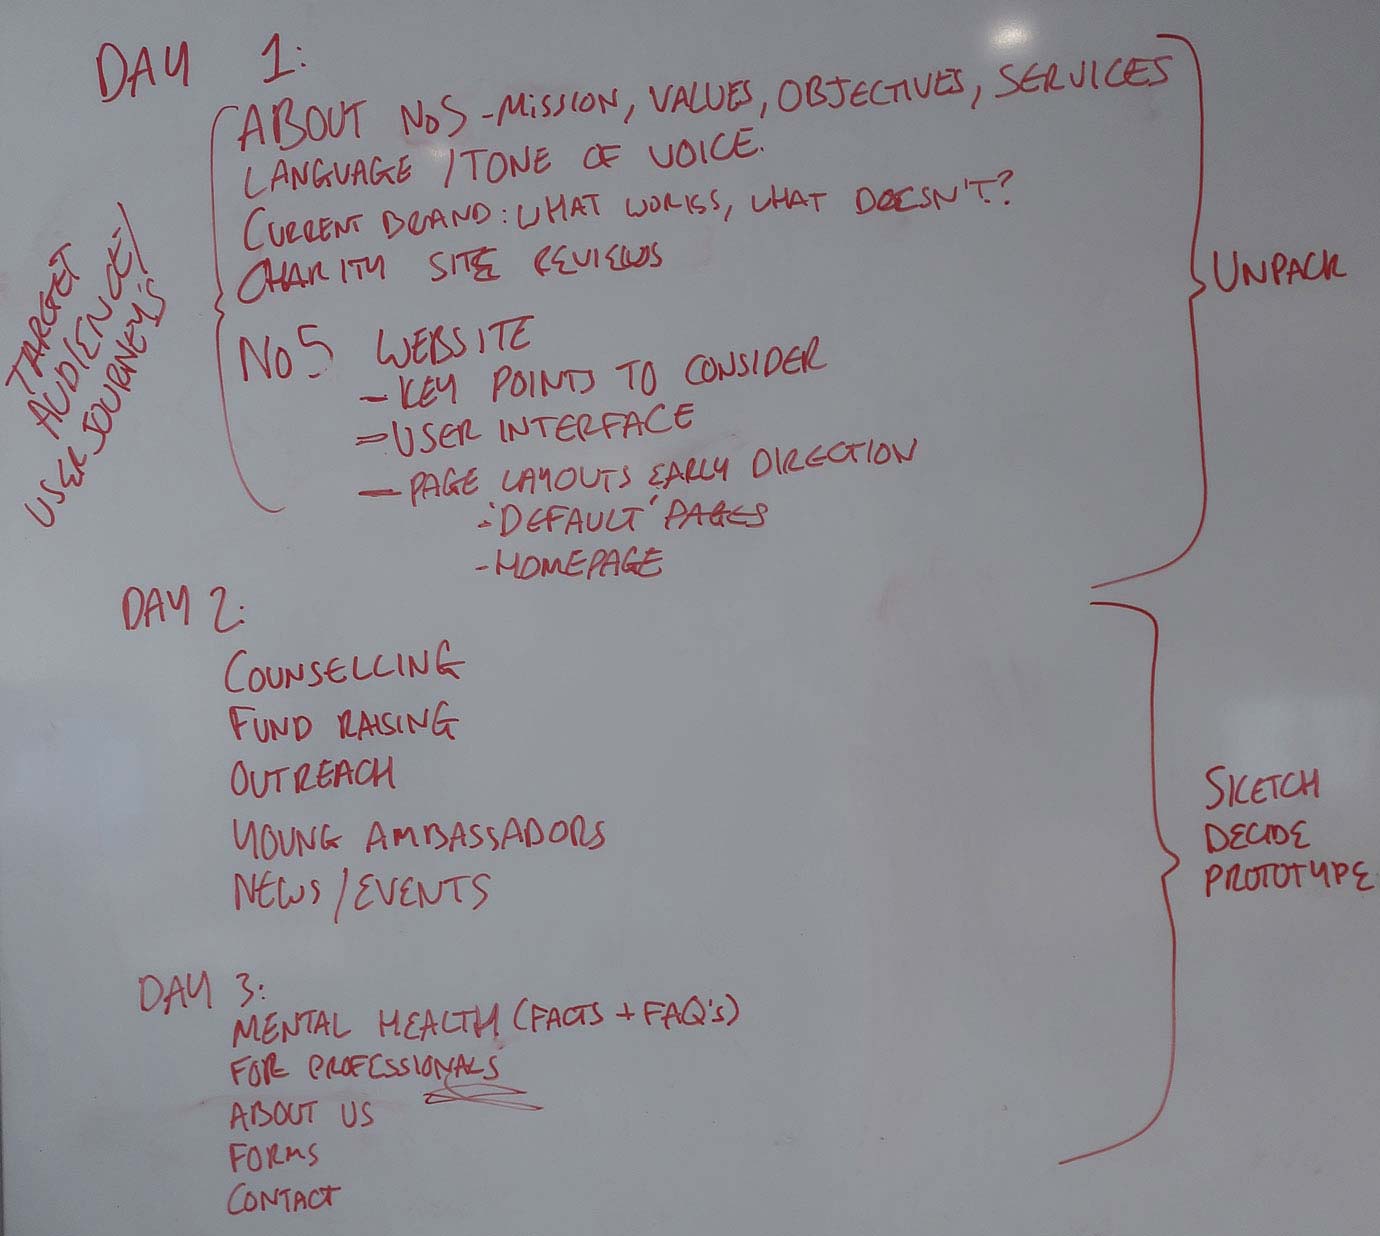 DAY 1:
ABOUT No5 - MISSION, VALUES, OBJECTIVES, SERVICES
LANGUAGE / TONE OF VOICE.
CURRENT BRAND: WHAT WORKS, WHAT DOESN'T?
CHARITY SITE REVIEWS
No5 WEBSITE
- KEY POINTS TO CONSIDER
- USER INTERFACE
- PAGE LAYOUTS EARLY DIRECTION
- 'DEFAULT' PAGES
- HOMEPAGE
TARGET
AUDIENCE/
USER JOURNEY'S
UNPACK
DAY 2:
COUNSELLING
FUND RAISING
OUTREACH
YOUNG AMBASSADORS
NEWS / EVENTS
DAY 3:
MENTAL HEALTH (FACTS + FAQ'S)
FOR PROFESSIONALS
ABOUT US
FORMS
CONTACT
SKETCH
DECIDE
PROTOTYPE